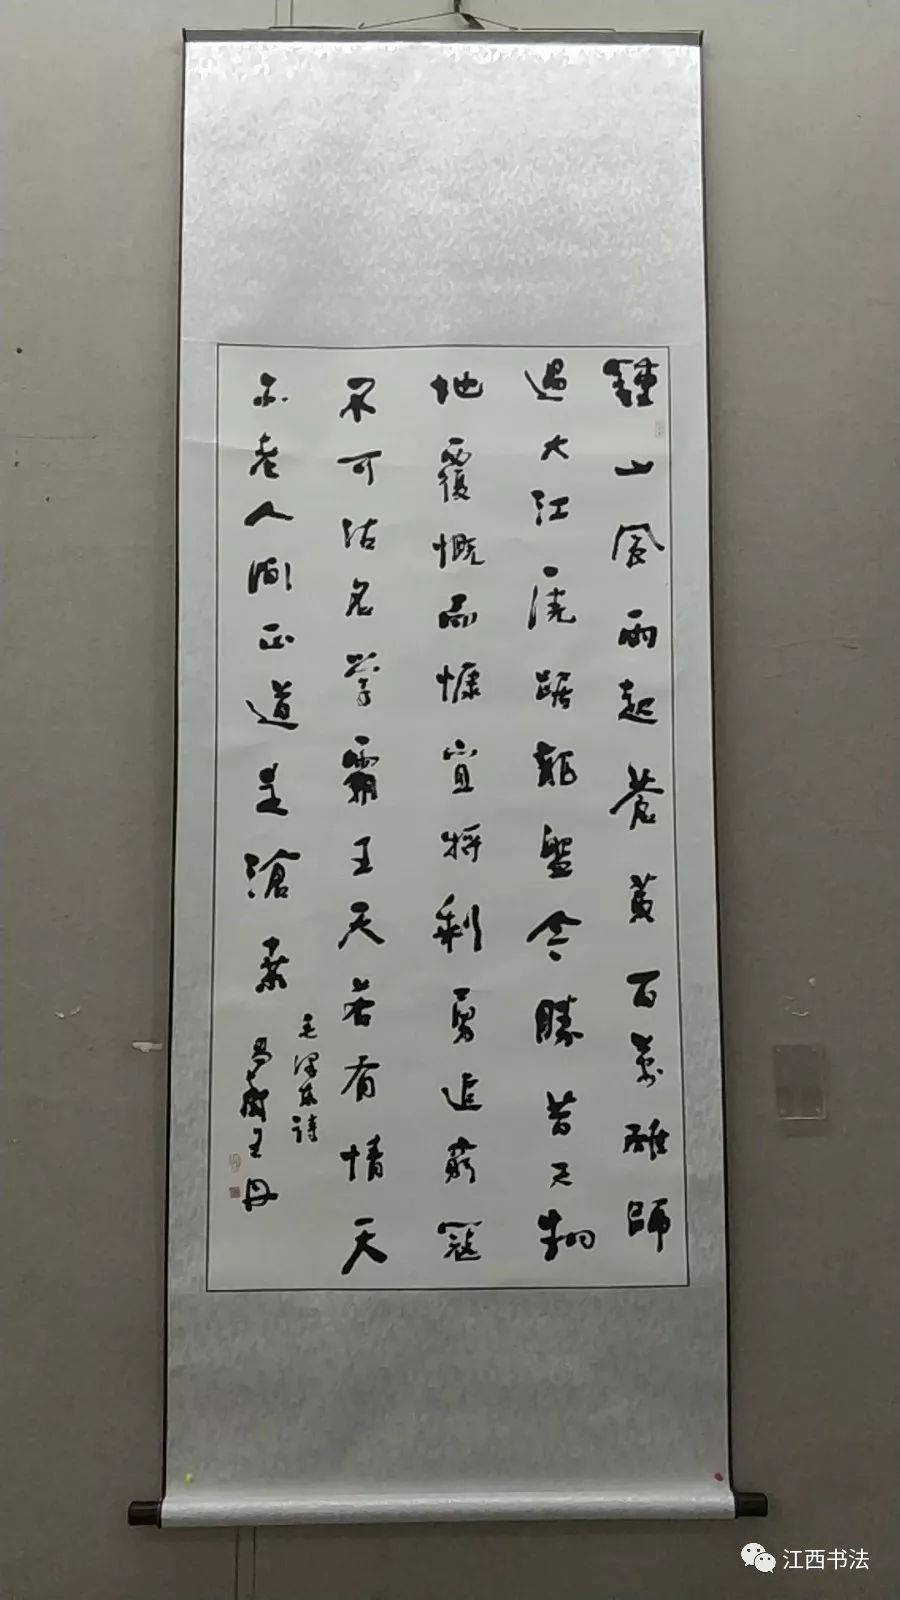 鍾山風雨起蒼黃百萬雄師
過大江虎踞龍盤今勝昔天翻
地覆慨而慷宜將剩勇追窮寇
不可沽名學霸王天若有情天
亦老人間正道是滄桑
毛澤東詩
王丹
江西书法